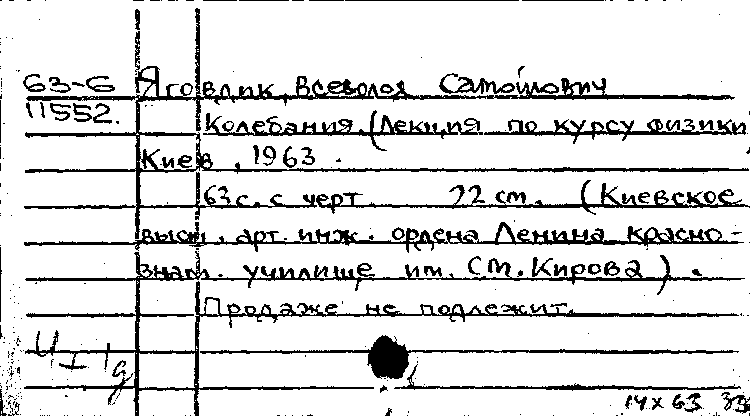 63-6 Яговдик, Всеволод Самойлович
11552.
Колебания. (Лекция по курсу физики)
Киев, 1963.
63 с. с черт. 22 см. (Киевское
высш. арт. инж. ордена Ленина красно-
знам. училище им. С.М. Кирова).
Продаже не подлежит.
14 X 63 33